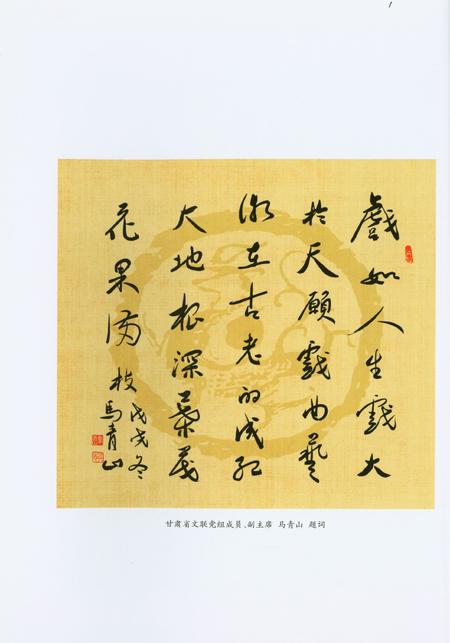 戲如人生戲大
於天願戲曲藝
術在古老的成紀
大地根深葉茂
花果滿枝 戊戌冬
馬青山
甘肃省文联党组成员、副主席 马青山 题词